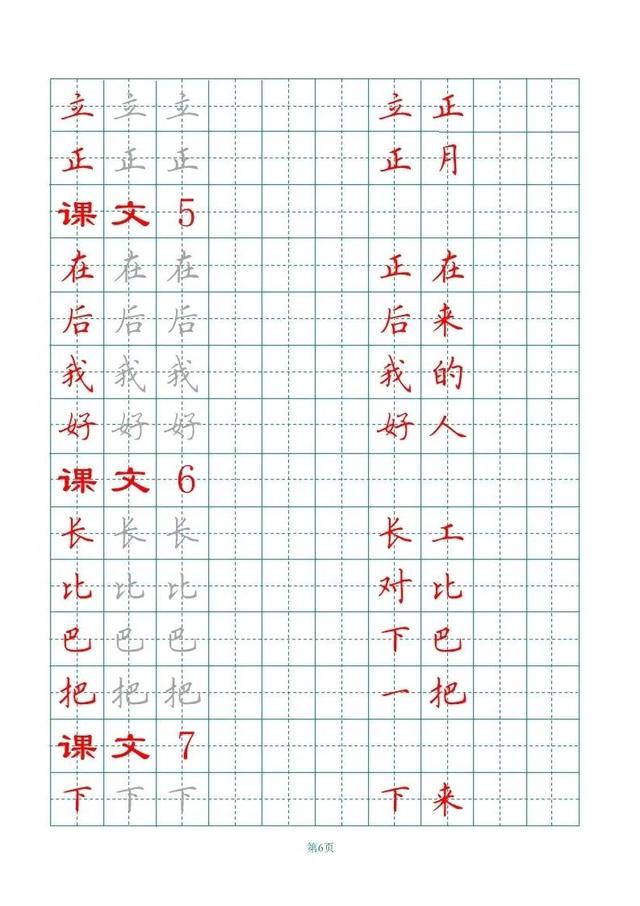 立立立 立正
正正正 正月
课文5
在在在 正在
后后后 后来
我我我 我的
好好好 好人
课文6
长长长 长工
比比比 对比
巴巴巴 下巴
把把把 一把
课文7
下下下 下来
第6页